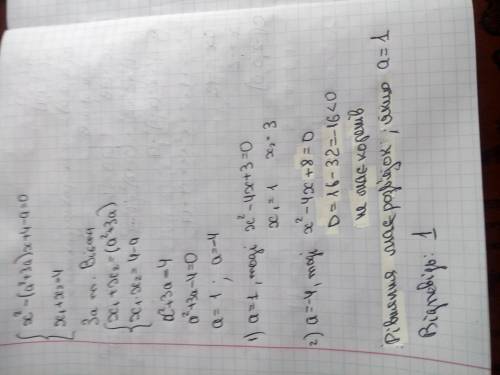 { x² - (a²+3a)x + 4 - a = 0
{ x₁ + x₂ = 4
За т. Вієта
{ x₁ + x₂ = (a²+3a)
{ x₁ · x₂ = 4 - a
a² + 3a = 4
a² + 3a - 4 = 0
a = 1 ; a = -4
1) a = 1, тоді x² - 4x + 3 = 0
x₁ = 1 x₂ = 3
2) a = -4, тоді x² - 4x + 8 = 0
D = 16 - 32 = -16 < 0
не має коренів
Рівняння має розв'язок, якщо a = 1
Відповідь: 1